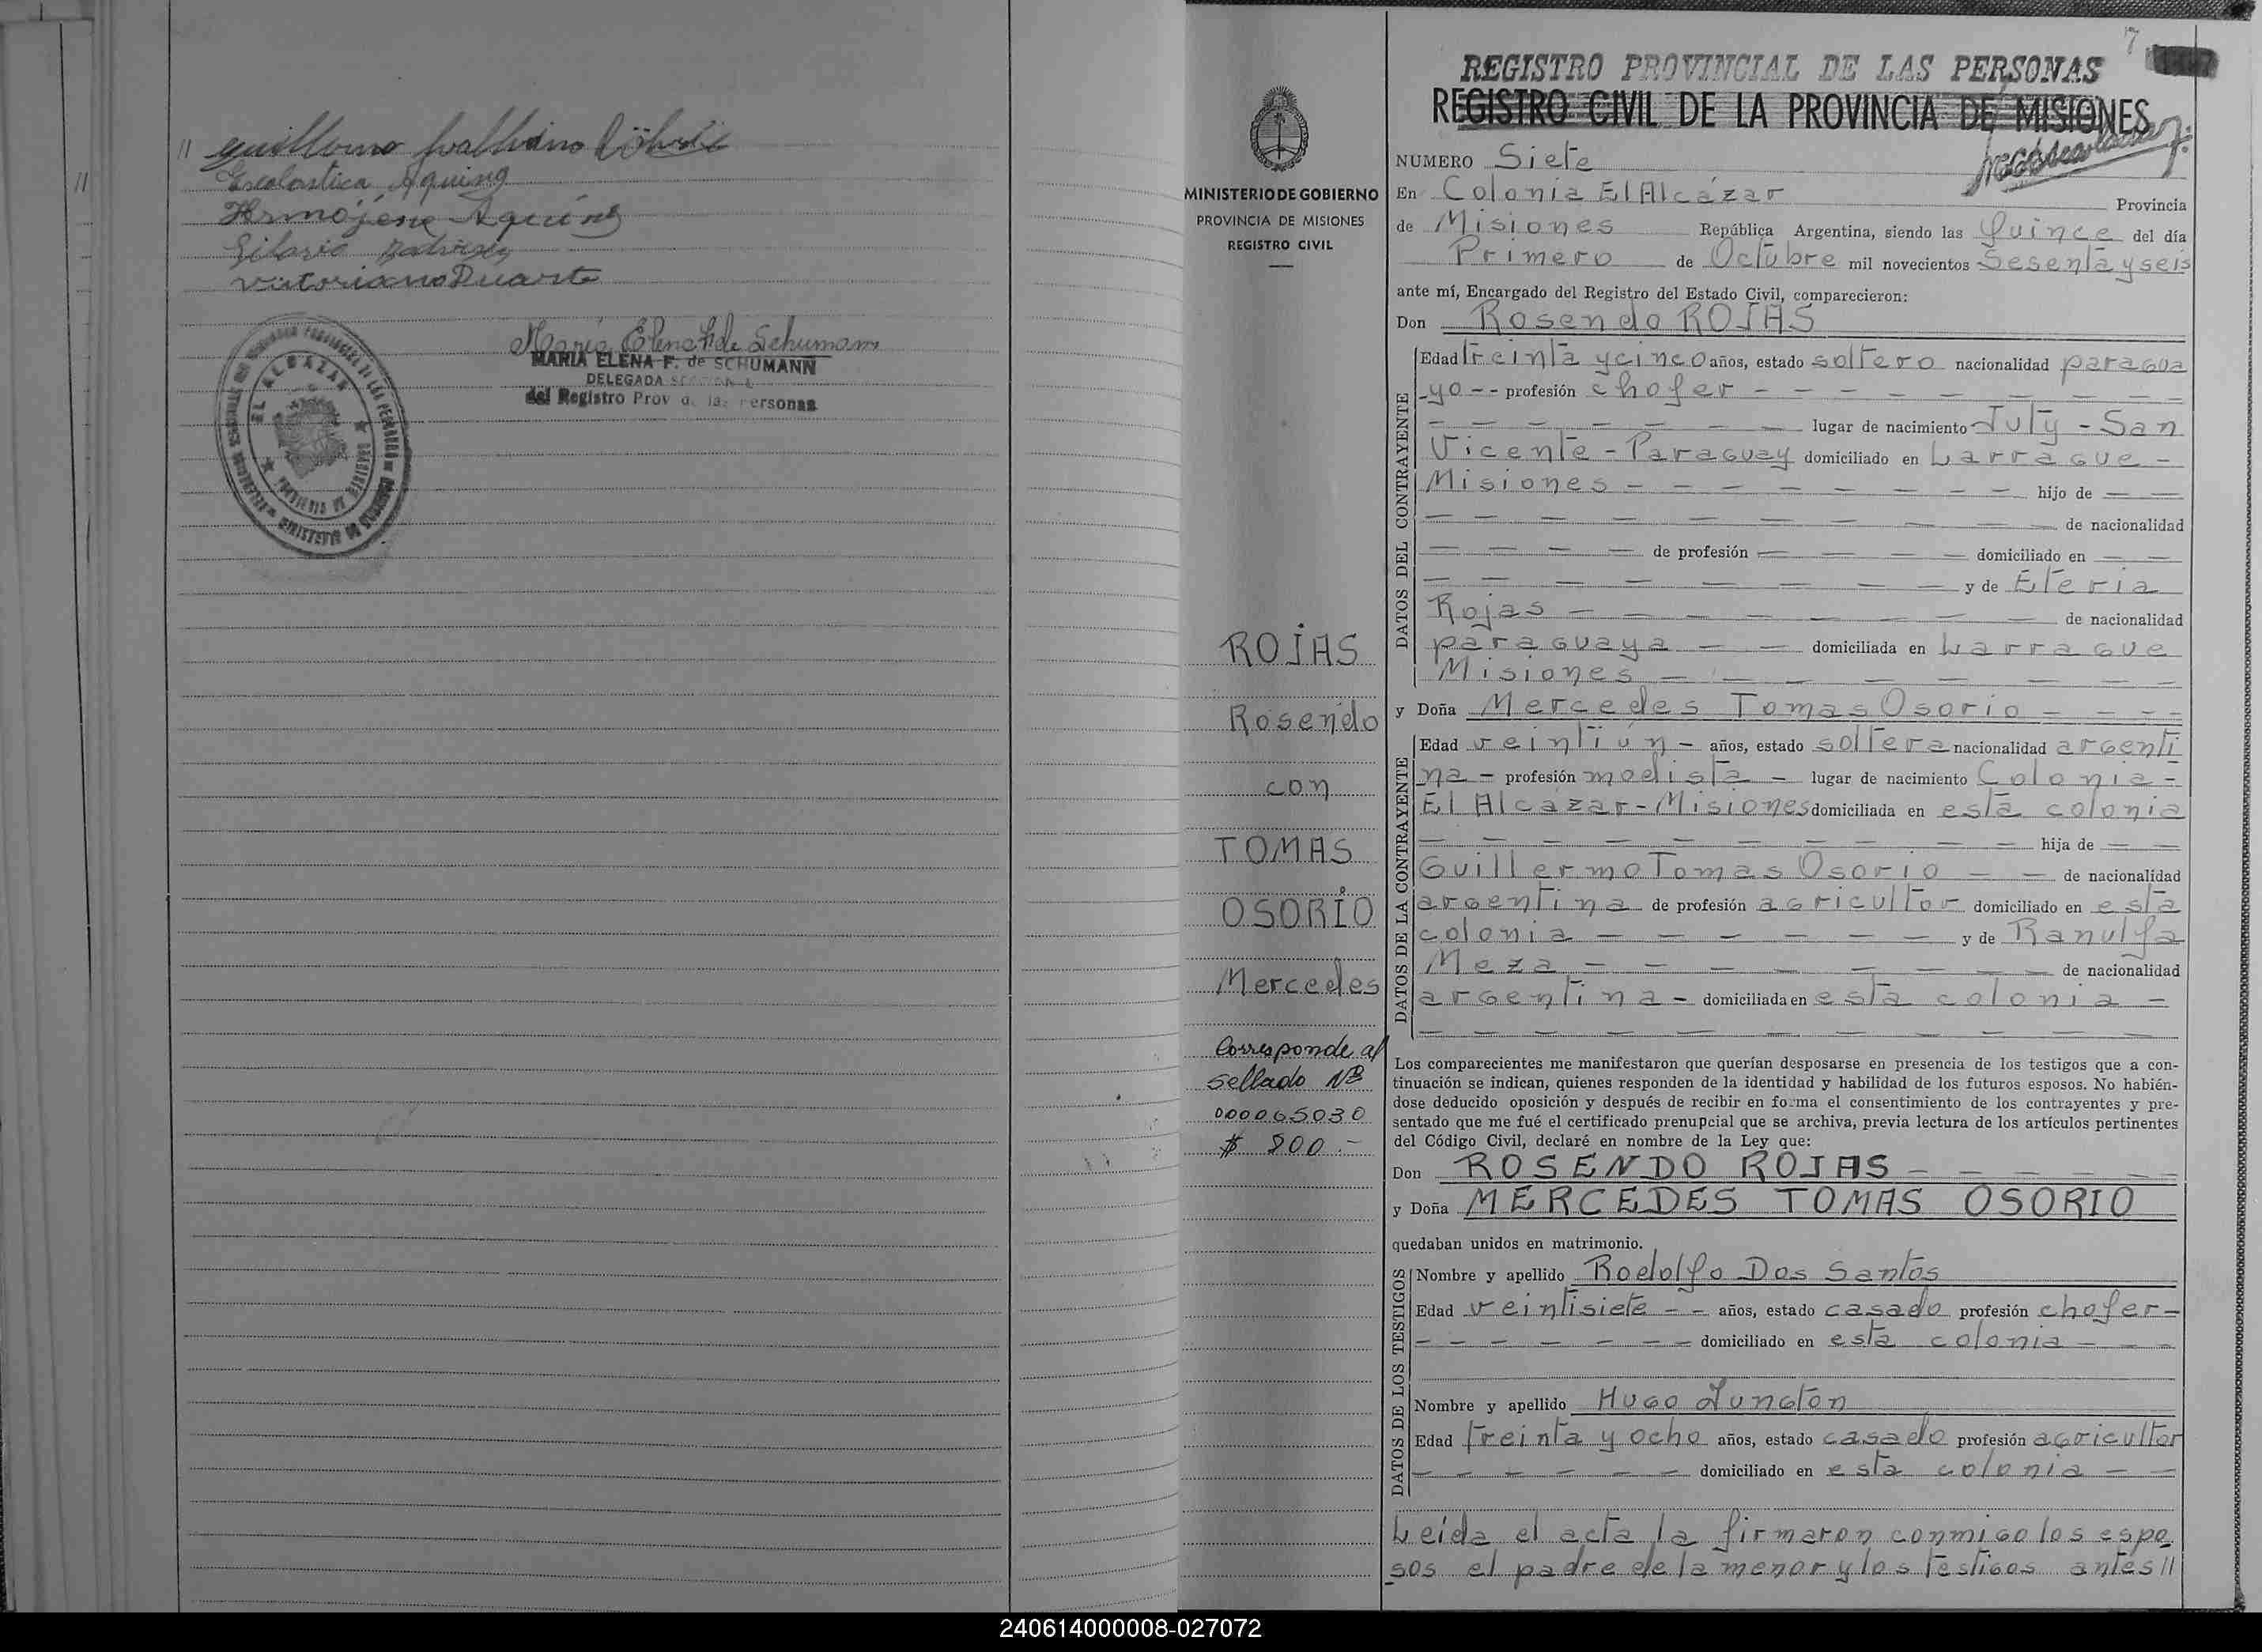 11
//
Guillermo
Escolastica Aquino
Hermojene Aquino
Hilario
Victoriano Duarte
Maria Elena F. de Schumann
MARIA ELENA F. de SCHUMANN
DELEGADA
del Registro Prov de las Personas
EL ALCAZAR
7
REGISTRO PROVINCIAL DE LAS PERSONAS
REGISTRO CIVIL DE LA PROVINCIA DE MISIONES
MINISTERIO DE GOBIERNO
PROVINCIA DE MISIONES
REGISTRO CIVIL
NUMERO Siete
En Colonia El Alcázar Provincia
de Misiones República Argentina, siendo las Quince del día
Primero de Octubre mil novecientos Sesenta y seis
ante mí, Encargado del Registro del Estado Civil, comparecieron:
Don Rosendo ROJAS
DATOS DEL CONTRAYENTE
Edad treinta y cinco años, estado soltero nacionalidad paragua
-yo - - profesión chofer - - - - - - - -
- - - - - - lugar de nacimiento Juty - San
Vicente - Paraguay domiciliado en Larrague -
Misiones - - - - - - - - hijo de - -
- - - - - - - - - de nacionalidad
- - - - de profesión - - - - domiciliado en - -
- - - - - - - - y de Eleria
Rojas - - - - - - - de nacionalidad
paraguaya - - domiciliada en Larrague
Misiones - - - - - - - -
y Doña Mercedes Tomas Osorio - - - -
DATOS DE LA CONTRAYENTE
Edad veintiún - años, estado soltera nacionalidad argenti
na - profesión modista - lugar de nacimiento Colonia -
El Alcázar - Misiones domiciliada en esta colonia
- - - - - - - - - - hija de - -
Guillermo Tomas Osorio - - de nacionalidad
argentina de profesión agricultor domiciliado en esta
colonia - - - - - - y de Ranulfa
Meza - - - - - - - de nacionalidad
argentina - domiciliada en esta colonia -
- - - - - - - - - - -
ROJAS
Rosendo
con
TOMAS
OSORIO
Mercedes
Corresponde al
sellado Nº
000065030
$ 800.-
Los comparecientes me manifestaron que querían desposarse en presencia de los testigos que a con-
tinuación se indican, quienes responden de la identidad y habilidad de los futuros esposos. No habién-
dose deducido oposición y después de recibir en forma el consentimiento de los contrayentes y pre-
sentado que me fué el certificado prenupcial que se archiva, previa lectura de los artículos pertinentes
del Código Civil, declaré en nombre de la Ley que:
Don ROSENDO ROJAS - - - - - -
y Doña MERCEDES TOMAS OSORIO
quedaban unidos en matrimonio.
DATOS DE LOS TESTIGOS
Nombre y apellido Rodolfo Dos Santos
Edad veintisiete - - años, estado casado profesión chofer -
- - - - - - - domiciliado en esta colonia - - -
Nombre y apellido Hugo Jungton
Edad treinta y ocho años, estado casado profesión agricultor
- - - - - - domiciliado en esta colonia - -
Leída el acta la firmaron conmigo los espo
sos el padre de la menor y los testigos antes //
240614000008-027072